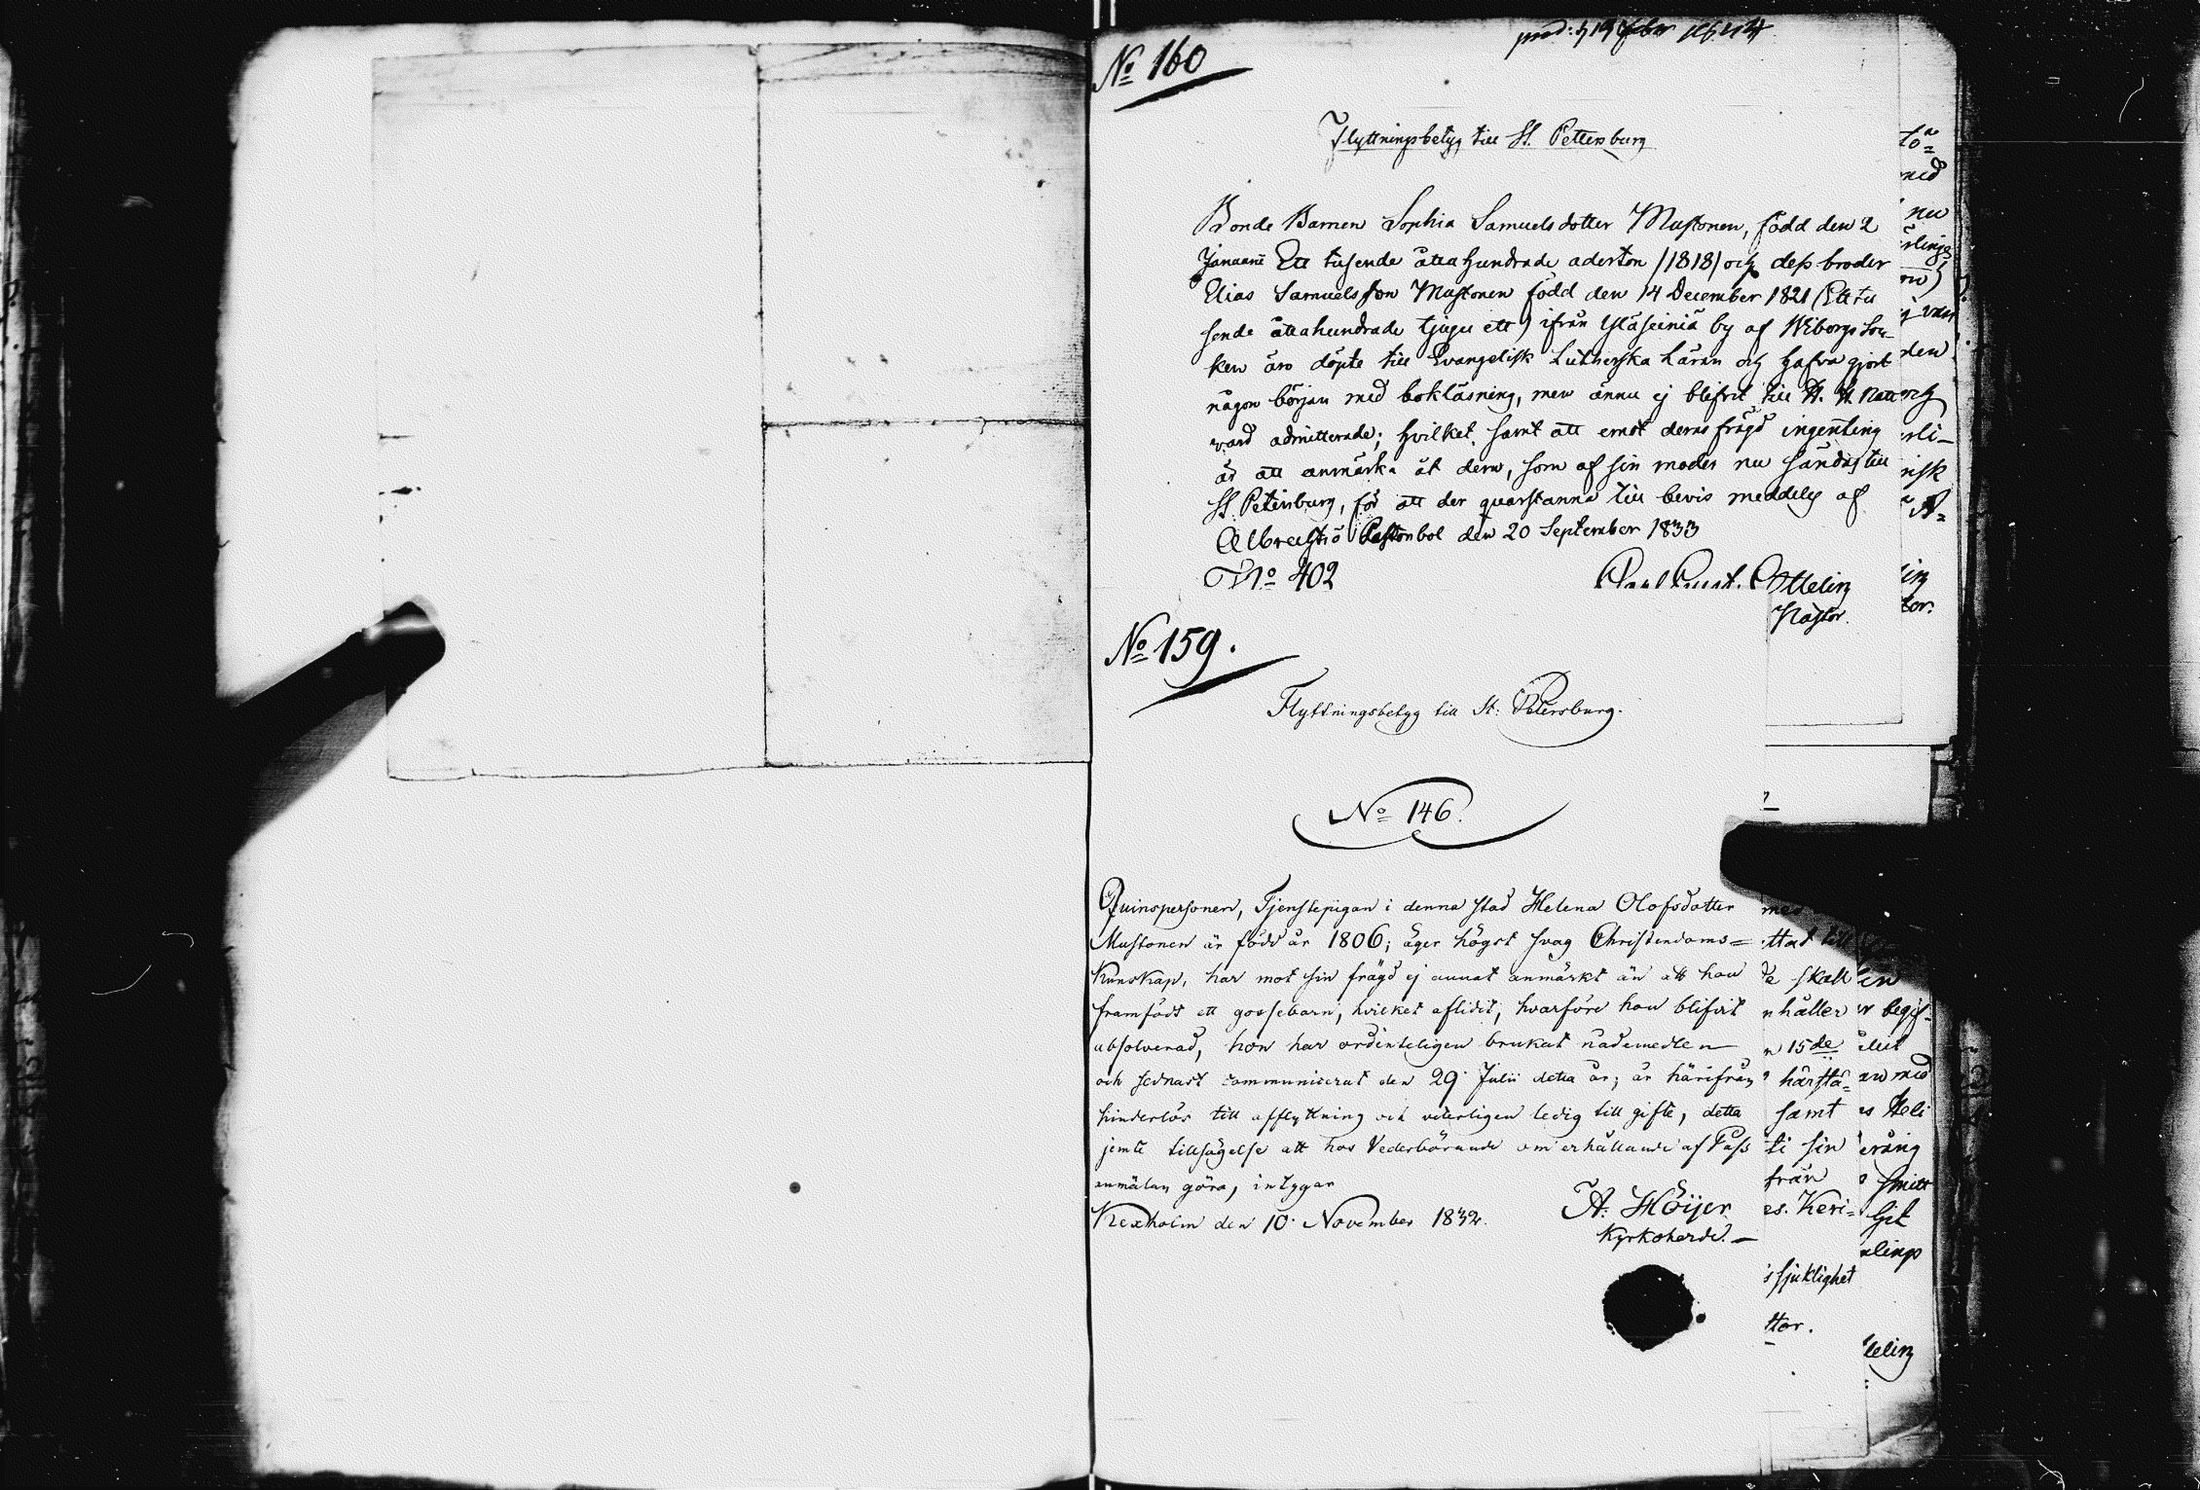 No 160
Flyttningsbetyg till St. Pettersburg
Bonde Barnen Sophia Samuelsdotter Mustonen, född den 2
Januarii Ett tusende åtta hundrade aderton /1818/ och dess broder
Elias Samuelsson Mustonen född den 14 December 1821 (Ett tu
sende åttahundrade tjugu ett) ifrån Yläseiniä by af Wiborgs Soc-
ken äro döpte till Evangelisk Lutherska Läran och hafva gjort
någon början med bokläsning, men ännu ej blifvit till H. H. Natt
vard admitterade; hvilket, samt att emot deras frägd ingenting
är att anmärka åt dem, som af sin moder nu sändas till
St. Petersburg, för att der quarstanna till bevis meddelas af
den 20 September 1833
No 402
Ottelin
Pastor.
No 159.
Flyttningsbetyg till St: Petersburg.
No 146.
Qvinspersonen, Tjenstepigan i denna stad Helena Olofsdotter
Mustonen är född år 1806; äger högst svag Christendoms=
kunskap, har mot sin frägd ej annat anmärkt än att hon
framfödt ett gossebarn, hvilket aflidit, hvarföre hon blifvit
absolverad, hon har ordenteligen brukat nådemedlen
och sednast communicerat den 29 Julii detta år; är härifrån
hinderlös till afflyttning och veterligen ledig till gifte, detta
jemte tillsägelse att hos Vederbörande om erhållande af Pass
anmälan göra, intygar
Kexholm den 10 November 1832.
A. Höijer
Kyrkoherde.
skall
håller
15de
härstä=
samt
sin
från
Keri=
sjuklighet